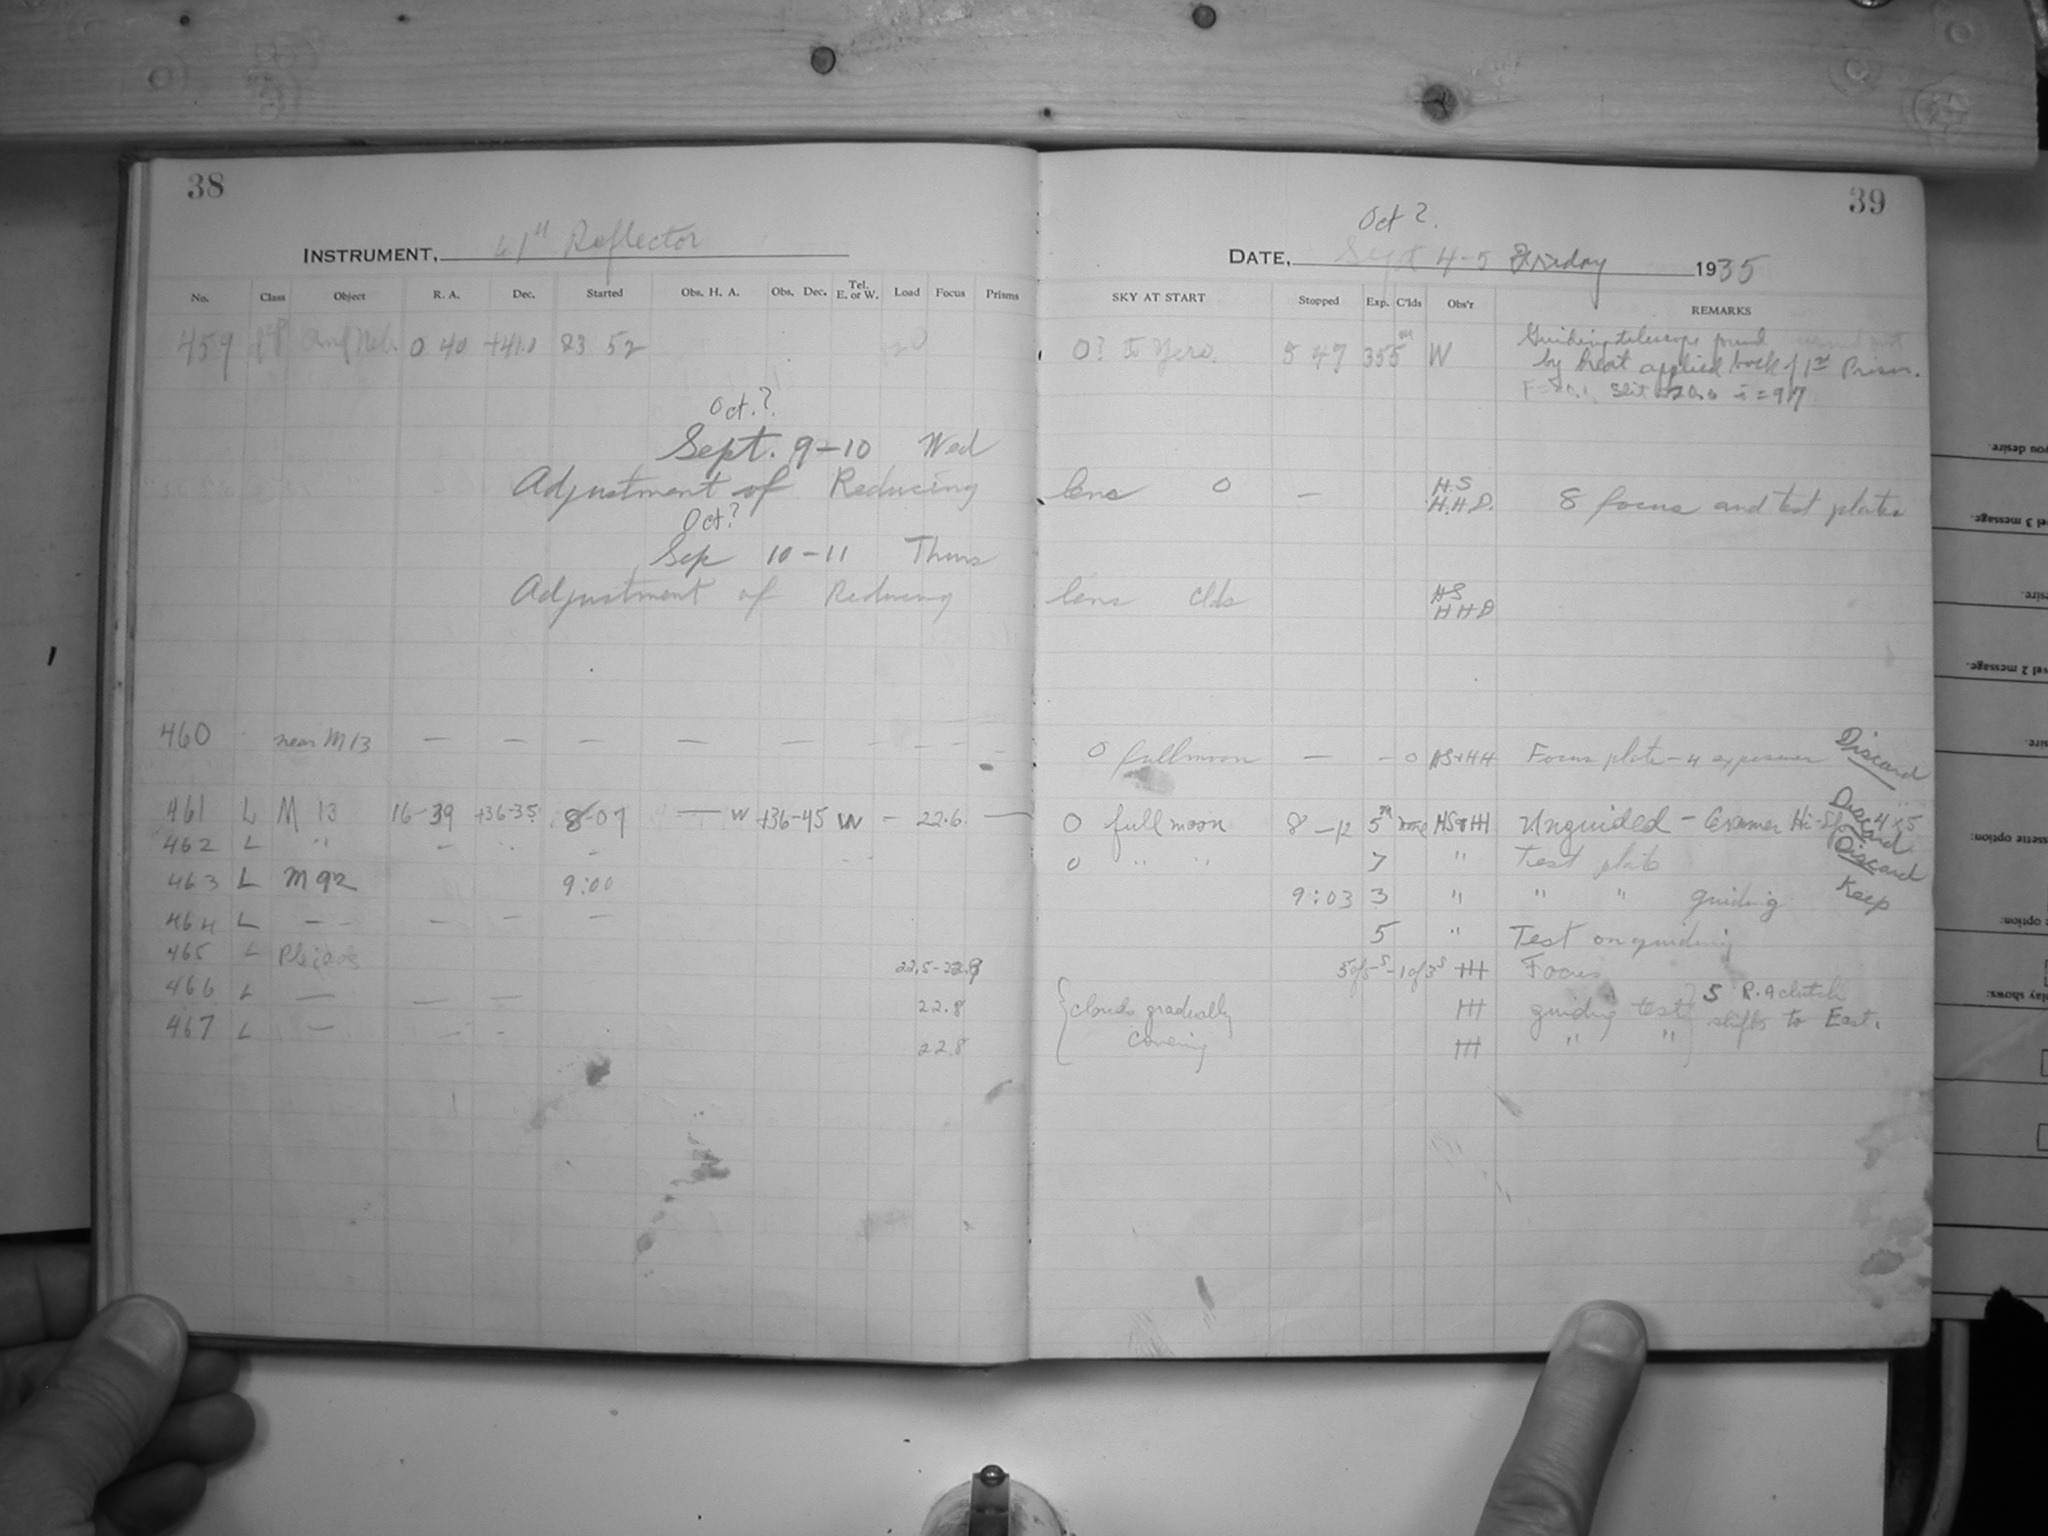 38
INSTRUMENT, 61" Reflector
No. Class Object R. A. Dec. Started Obs. H. A. Obs. Dec. Tel. E. or W. Load Focus Prisms
459 And Neb. 0 40 +41.0 23 52 20
Oct.?
Sept. 9-10 Wed
Adjustment of Reducing
Oct?
Sep 10-11 Thurs
Adjustment of Reducing
460 near M13 — — — — — - - - -
461 L M 13 16-39 +36-35 8-07 — W +36-45 W - 22.6 —
462 L " - " -
463 L M 92 9:00
464 L — - — — —
465 L Pleiades 22.5-22.9
466 L — — — 22.8
467 L — - - 22.8
39
Oct ?
DATE, Sept 4-5 Friday 1935
SKY AT START Stopped Exp. C'lds Obs'r REMARKS
0? to Zero. 5 47 355m W Guiding telescope found
by heat applied back of 1st Prism.
slit i = 97
lens 0 — H.S
H.H.D. 8 focus and test plates
lens Clds HS
HHD
0 full moon — - 0 HS+HH Focus plate - 4 exposures Discard
0 full moon 8-12 5m none HS+HH Unguided - Cramer Hi-Sp 4x5 Discard
0 " " 7 " Test plate Discard
9:03 3 " " " guiding Keep
5 " Test on guiding
5 of 5s - 1 of 3s HH Focus
{clouds gradually HH guiding test} S R.A clutch
covering HH " " shifts to East.
you desire.
el 3 message.
sire.
vel 2 message.
sire.
ssette option:
option:
play shows: